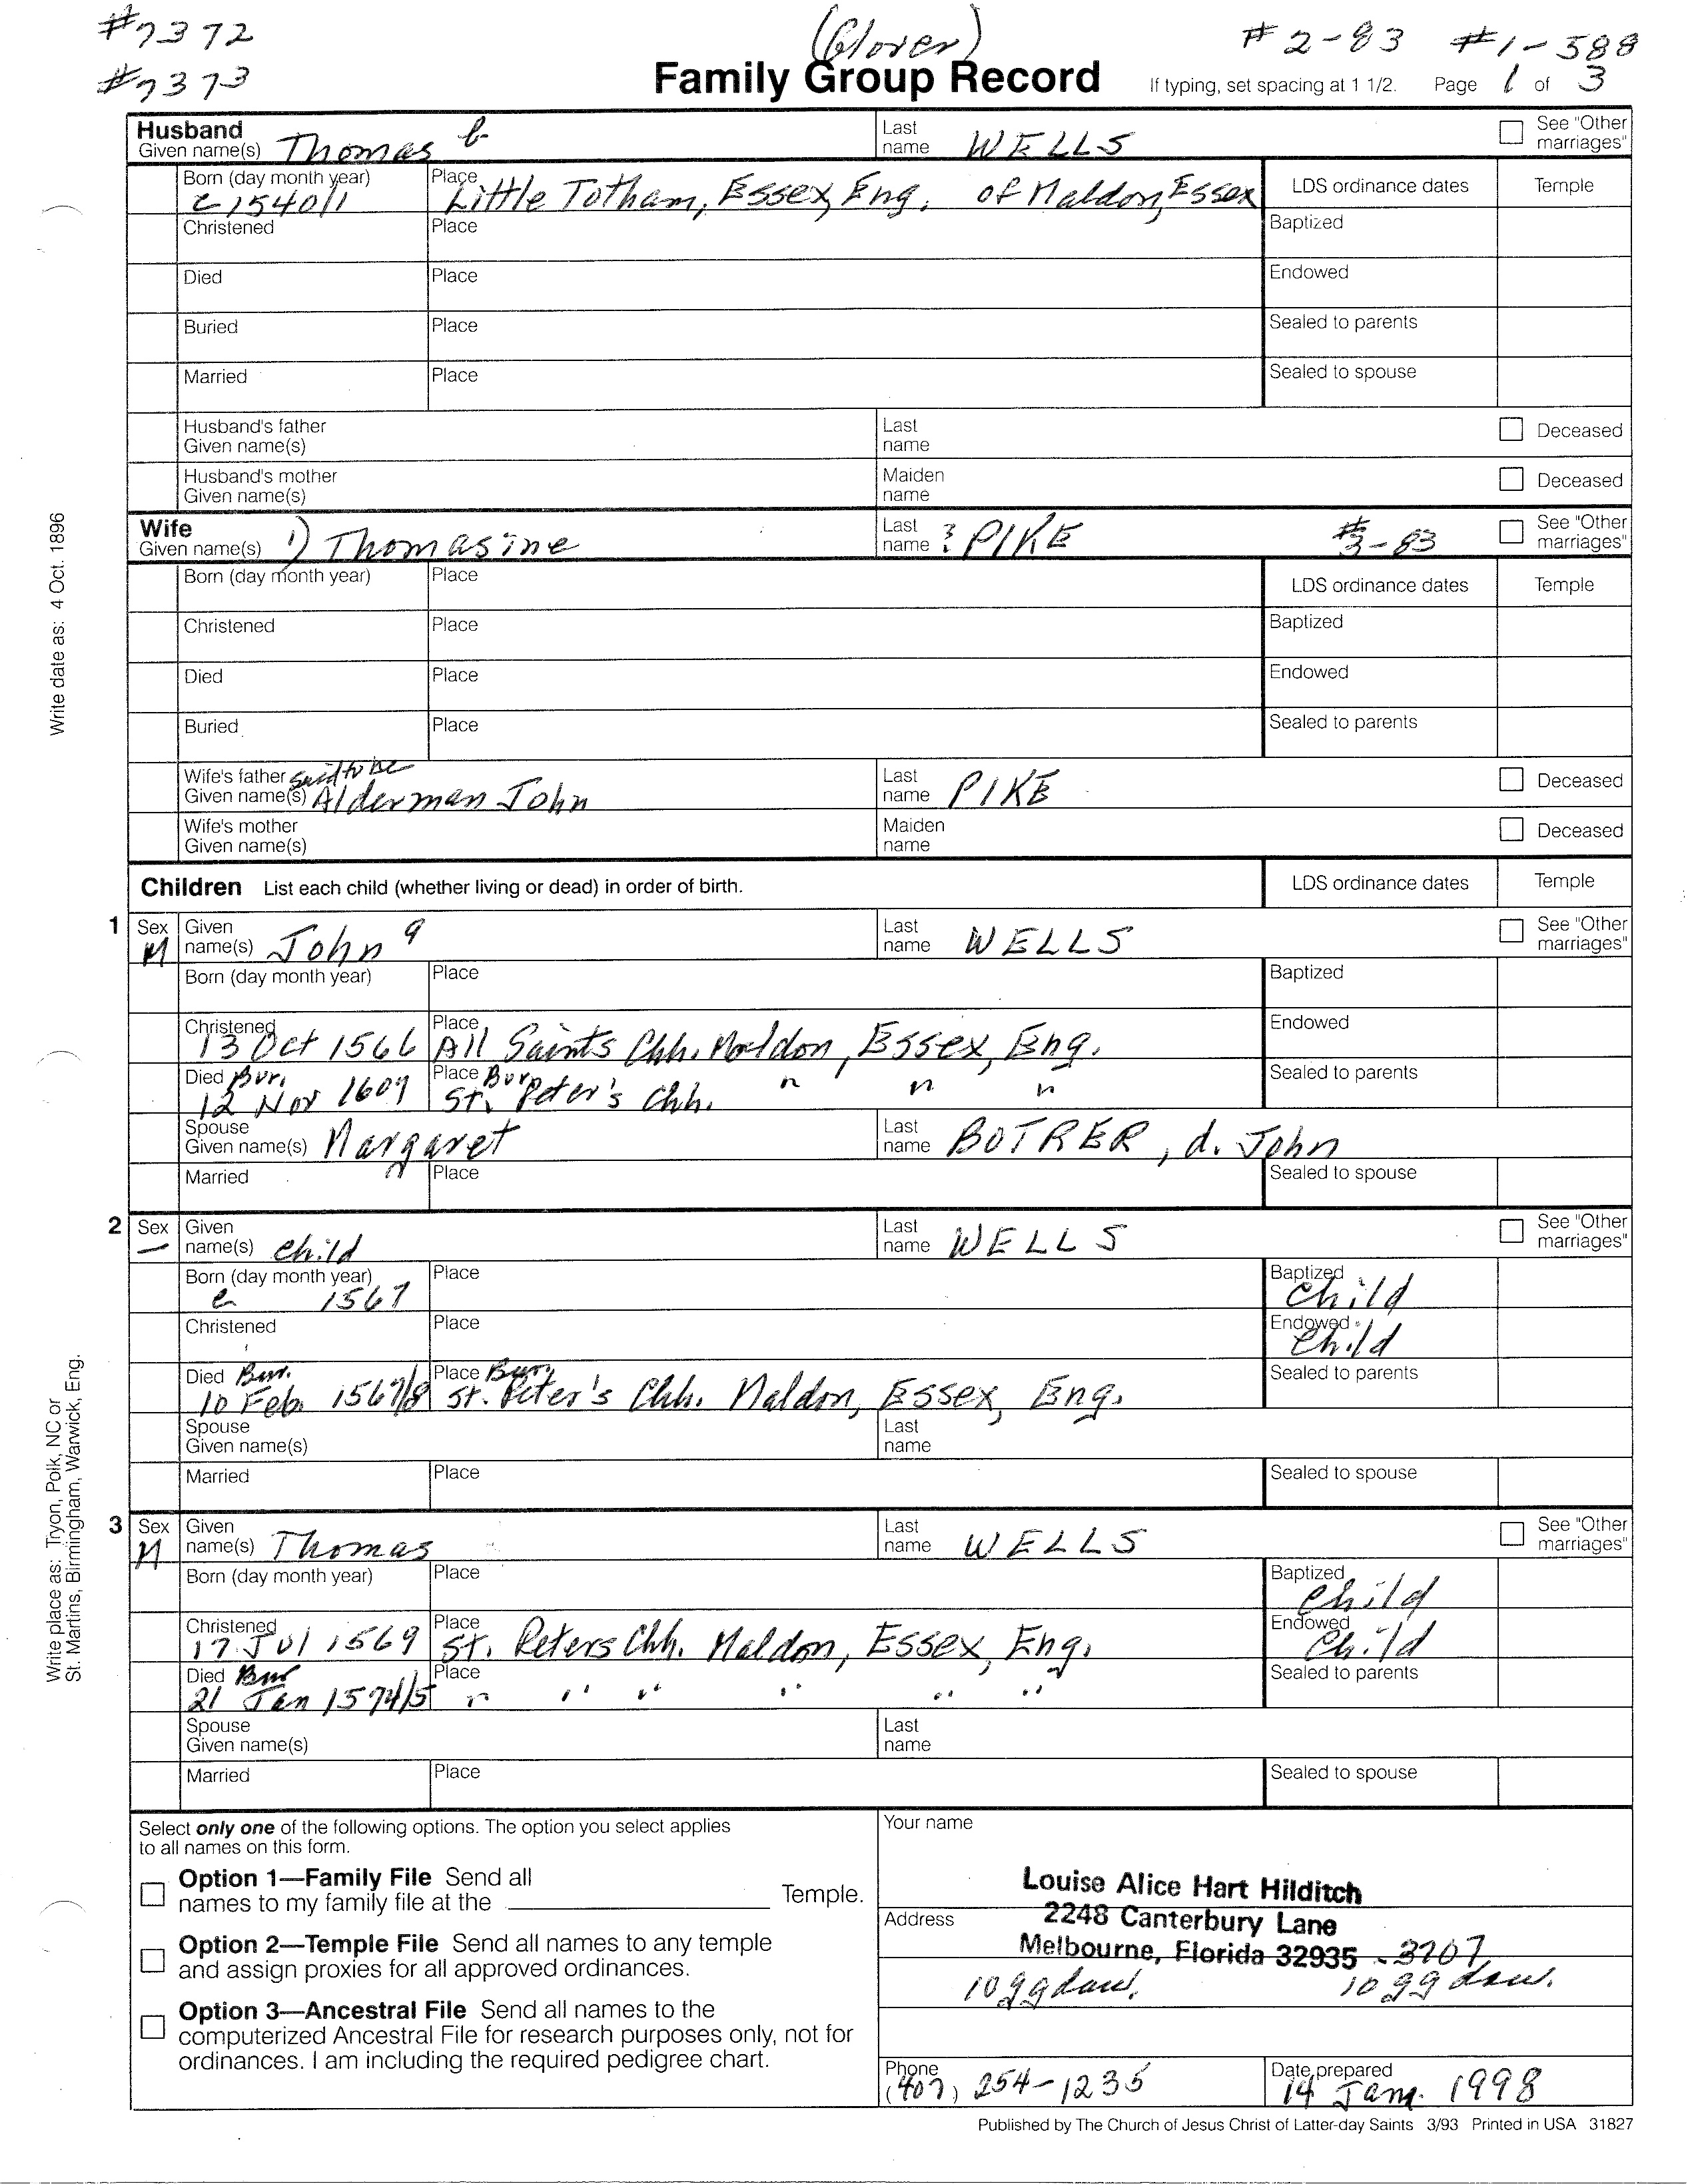 #7372 (Glover) #2-83 #1-588
#7373 Family Group Record If typing, set spacing at 1 1/2. Page 1 of 3
Husband
Given name(s) Thomas Last name WELLS See "Other marriages"
Born (day month year) c 1540/1 Place Little Totham, Essex, Eng. of Maldon, Essex LDS ordinance dates Temple
Christened Place Baptized
Died Place Endowed
Buried Place Sealed to parents
Married Place Sealed to spouse
Husband's father Given name(s) Last name Deceased
Husband's mother Given name(s) Maiden name Deceased
Wife
Given name(s) 1) Thomasine Last name ? PIKE #3-83 See "Other marriages"
Born (day month year) Place LDS ordinance dates Temple
Christened Place Baptized
Died Place Endowed
Buried Place Sealed to parents
Wife's father Given name(s) said to be Alderman John Last name PIKE Deceased
Wife's mother Given name(s) Maiden name Deceased
Children List each child (whether living or dead) in order of birth. LDS ordinance dates Temple
1 Sex M Given name(s) John 9 Last name WELLS See "Other marriages"
Born (day month year) Place Baptized
Christened 13 Oct 1566 Place All Saints Chh. Maldon, Essex, Eng. Endowed
Died Bur. 12 Nov 1609 Place Bur. St. Peter's Chh. " " " Sealed to parents
Spouse Given name(s) Margaret Last name BOTRER, d. John
Married Place Sealed to spouse
2 Sex — Given name(s) Child Last name WELLS See "Other marriages"
Born (day month year) c 1567 Place Baptized Child
Christened Place Endowed Child
Died Bur. 10 Feb. 1567/8 Place Bur. St. Peter's Chh. Maldon, Essex, Eng. Sealed to parents
Spouse Given name(s) Last name
Married Place Sealed to spouse
3 Sex M Given name(s) Thomas Last name WELLS See "Other marriages"
Born (day month year) Place Baptized Child
Christened 17 Jul 1569 Place St. Peters Chh. Maldon, Essex, Eng. Endowed Child
Died Bur 21 Jan 1574/5 Place " " " " " " Sealed to parents
Spouse Given name(s) Last name
Married Place Sealed to spouse
Select only one of the following options. The option you select applies
to all names on this form.
Option 1—Family File Send all
names to my family file at the Temple.
Option 2—Temple File Send all names to any temple
and assign proxies for all approved ordinances.
Option 3—Ancestral File Send all names to the
computerized Ancestral File for research purposes only, not for
ordinances. I am including the required pedigree chart.
Your name
Louise Alice Hart Hilditch
Address 2248 Canterbury Lane
Melbourne, Florida 32935 -3707
10 gg dau. 10 gg dau.
Phone (407) 254-1235 Date prepared 14 Jan. 1998
Published by The Church of Jesus Christ of Latter-day Saints 3/93 Printed in USA 31827
Write date as: 4 Oct. 1896
Write place as: Tryon, Polk, NC or
St. Martins, Birmingham, Warwick, Eng.